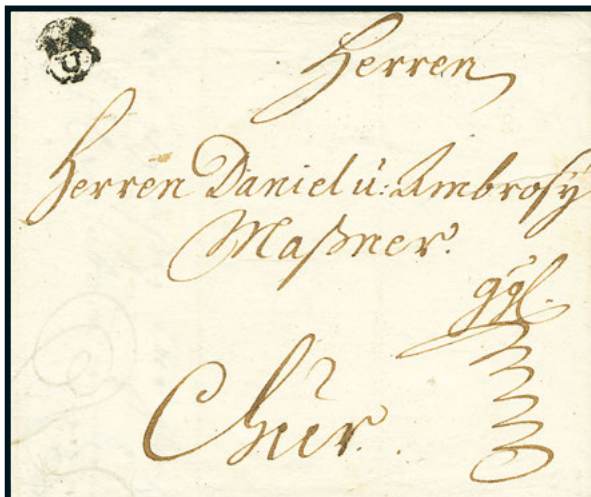 U
Herren
Herren Daniel u: Ambrosy
Maßner.
Chur.